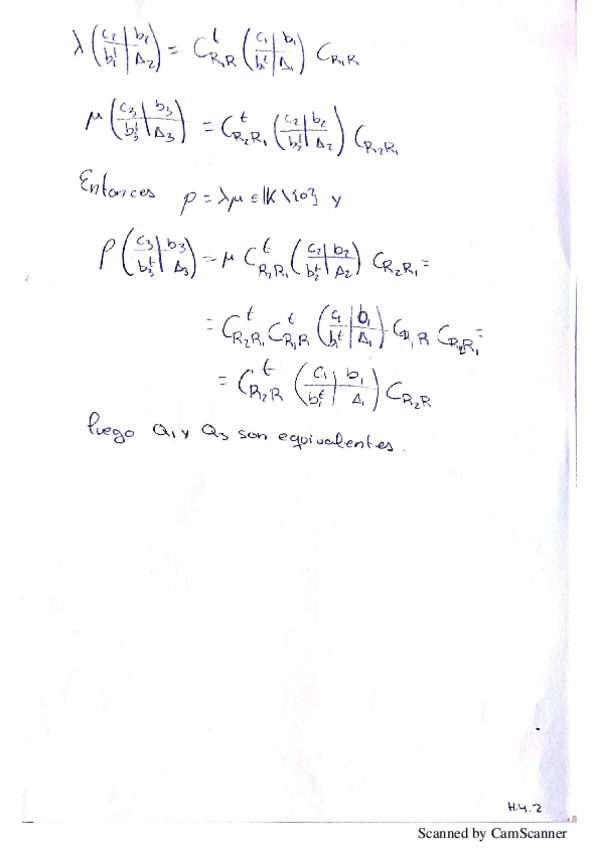 λ(c₂|b₂ / b₂ᵗ|A₂) = Cᵗ_R₁R (c₁|b₁ / b₁ᵗ|A₁) C_R₁R
μ(c₃|b₃ / b₃ᵗ|A₃) = Cᵗ_R₂R₁ (c₂|b₂ / b₂ᵗ|A₂) C_R₂R₁
Entonces ρ = λμ ∈ 𝕂\{0} y
ρ(c₃|b₃ / b₃ᵗ|A₃) = μ Cᵗ_R₂R₁ (c₂|b₂ / b₂ᵗ|A₂) C_R₂R₁ =
= Cᵗ_R₂R₁ Cᵗ_R₁R (c₁|b₁ / b₁ᵗ|A₁) C_R₁R C_R₂R₁ =
= Cᵗ_R₂R (c₁|b₁ / b₁ᵗ|A₁) C_R₂R
luego Q₁ y Q₃ son equivalentes.
H.4.2
Scanned by CamScanner